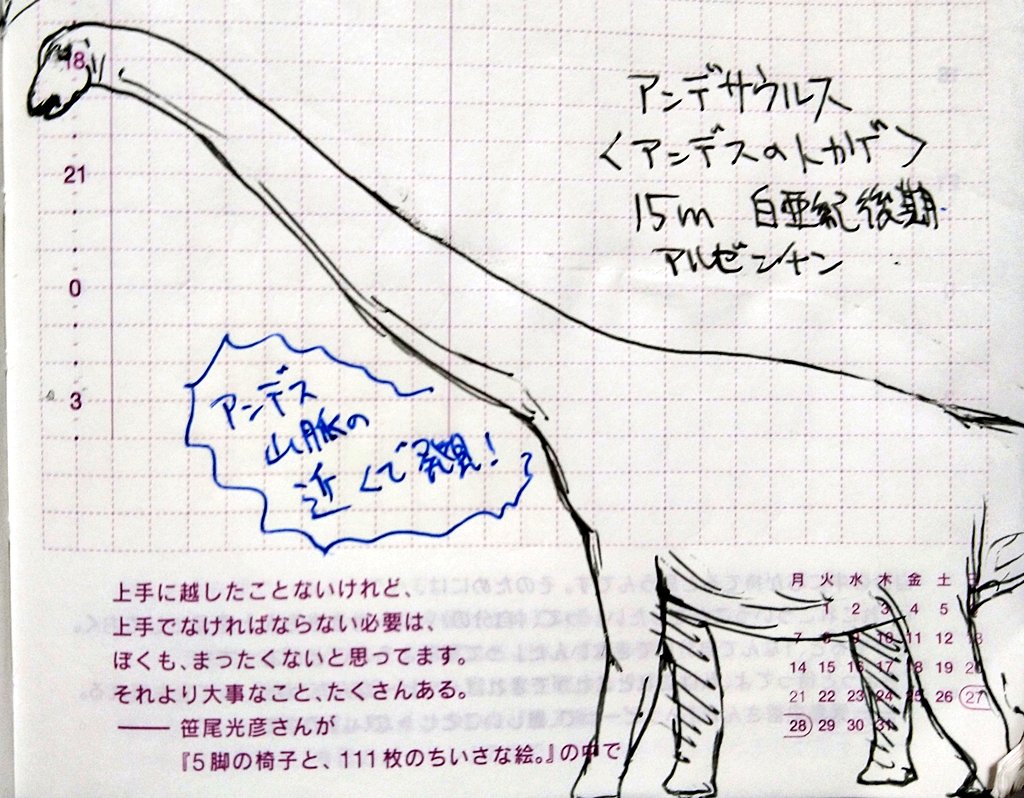 18
21
0
3
アンデサウルス
<アンデスのトカゲ>
15m 白亜紀後期
アルゼンチン
アンデス
山脈の
近くで発見!
上手に越したことないけれど、
上手でなければならない必要は、
ぼくも、まったくないと思ってます。
それより大事なこと、たくさんある。
―― 笹尾光彦さんが
『5脚の椅子と、111枚のちいさな絵。』の中で
月 火 水 木 金 土
1 2 3 4 5
7 8 9 10 11 12 13
14 15 16 17 18 19 20
21 22 23 24 25 26 27
28 29 30 31